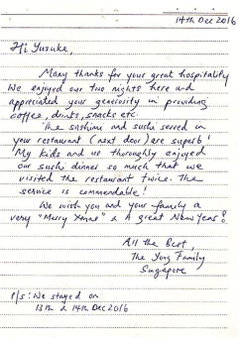 14th Dec 2016
Hi Yusuke,
Many thanks for your great hospitality
We enjoyed our two nights here and
appreciated your generosity in providing
coffee, drinks, snacks etc.
The sashimi and sushi served in
your restaurant (next door) are superb!
My kids and us thoroughly enjoyed
our sushi dinner so much that we
visited the restaurant twice. The
service is commendable!
We wish you and your family a
very "Merry Xmas" & A great New Year!
All the Best,
The Yong Family
Singapore
P/s: We stayed on
13th & 14th Dec 2016